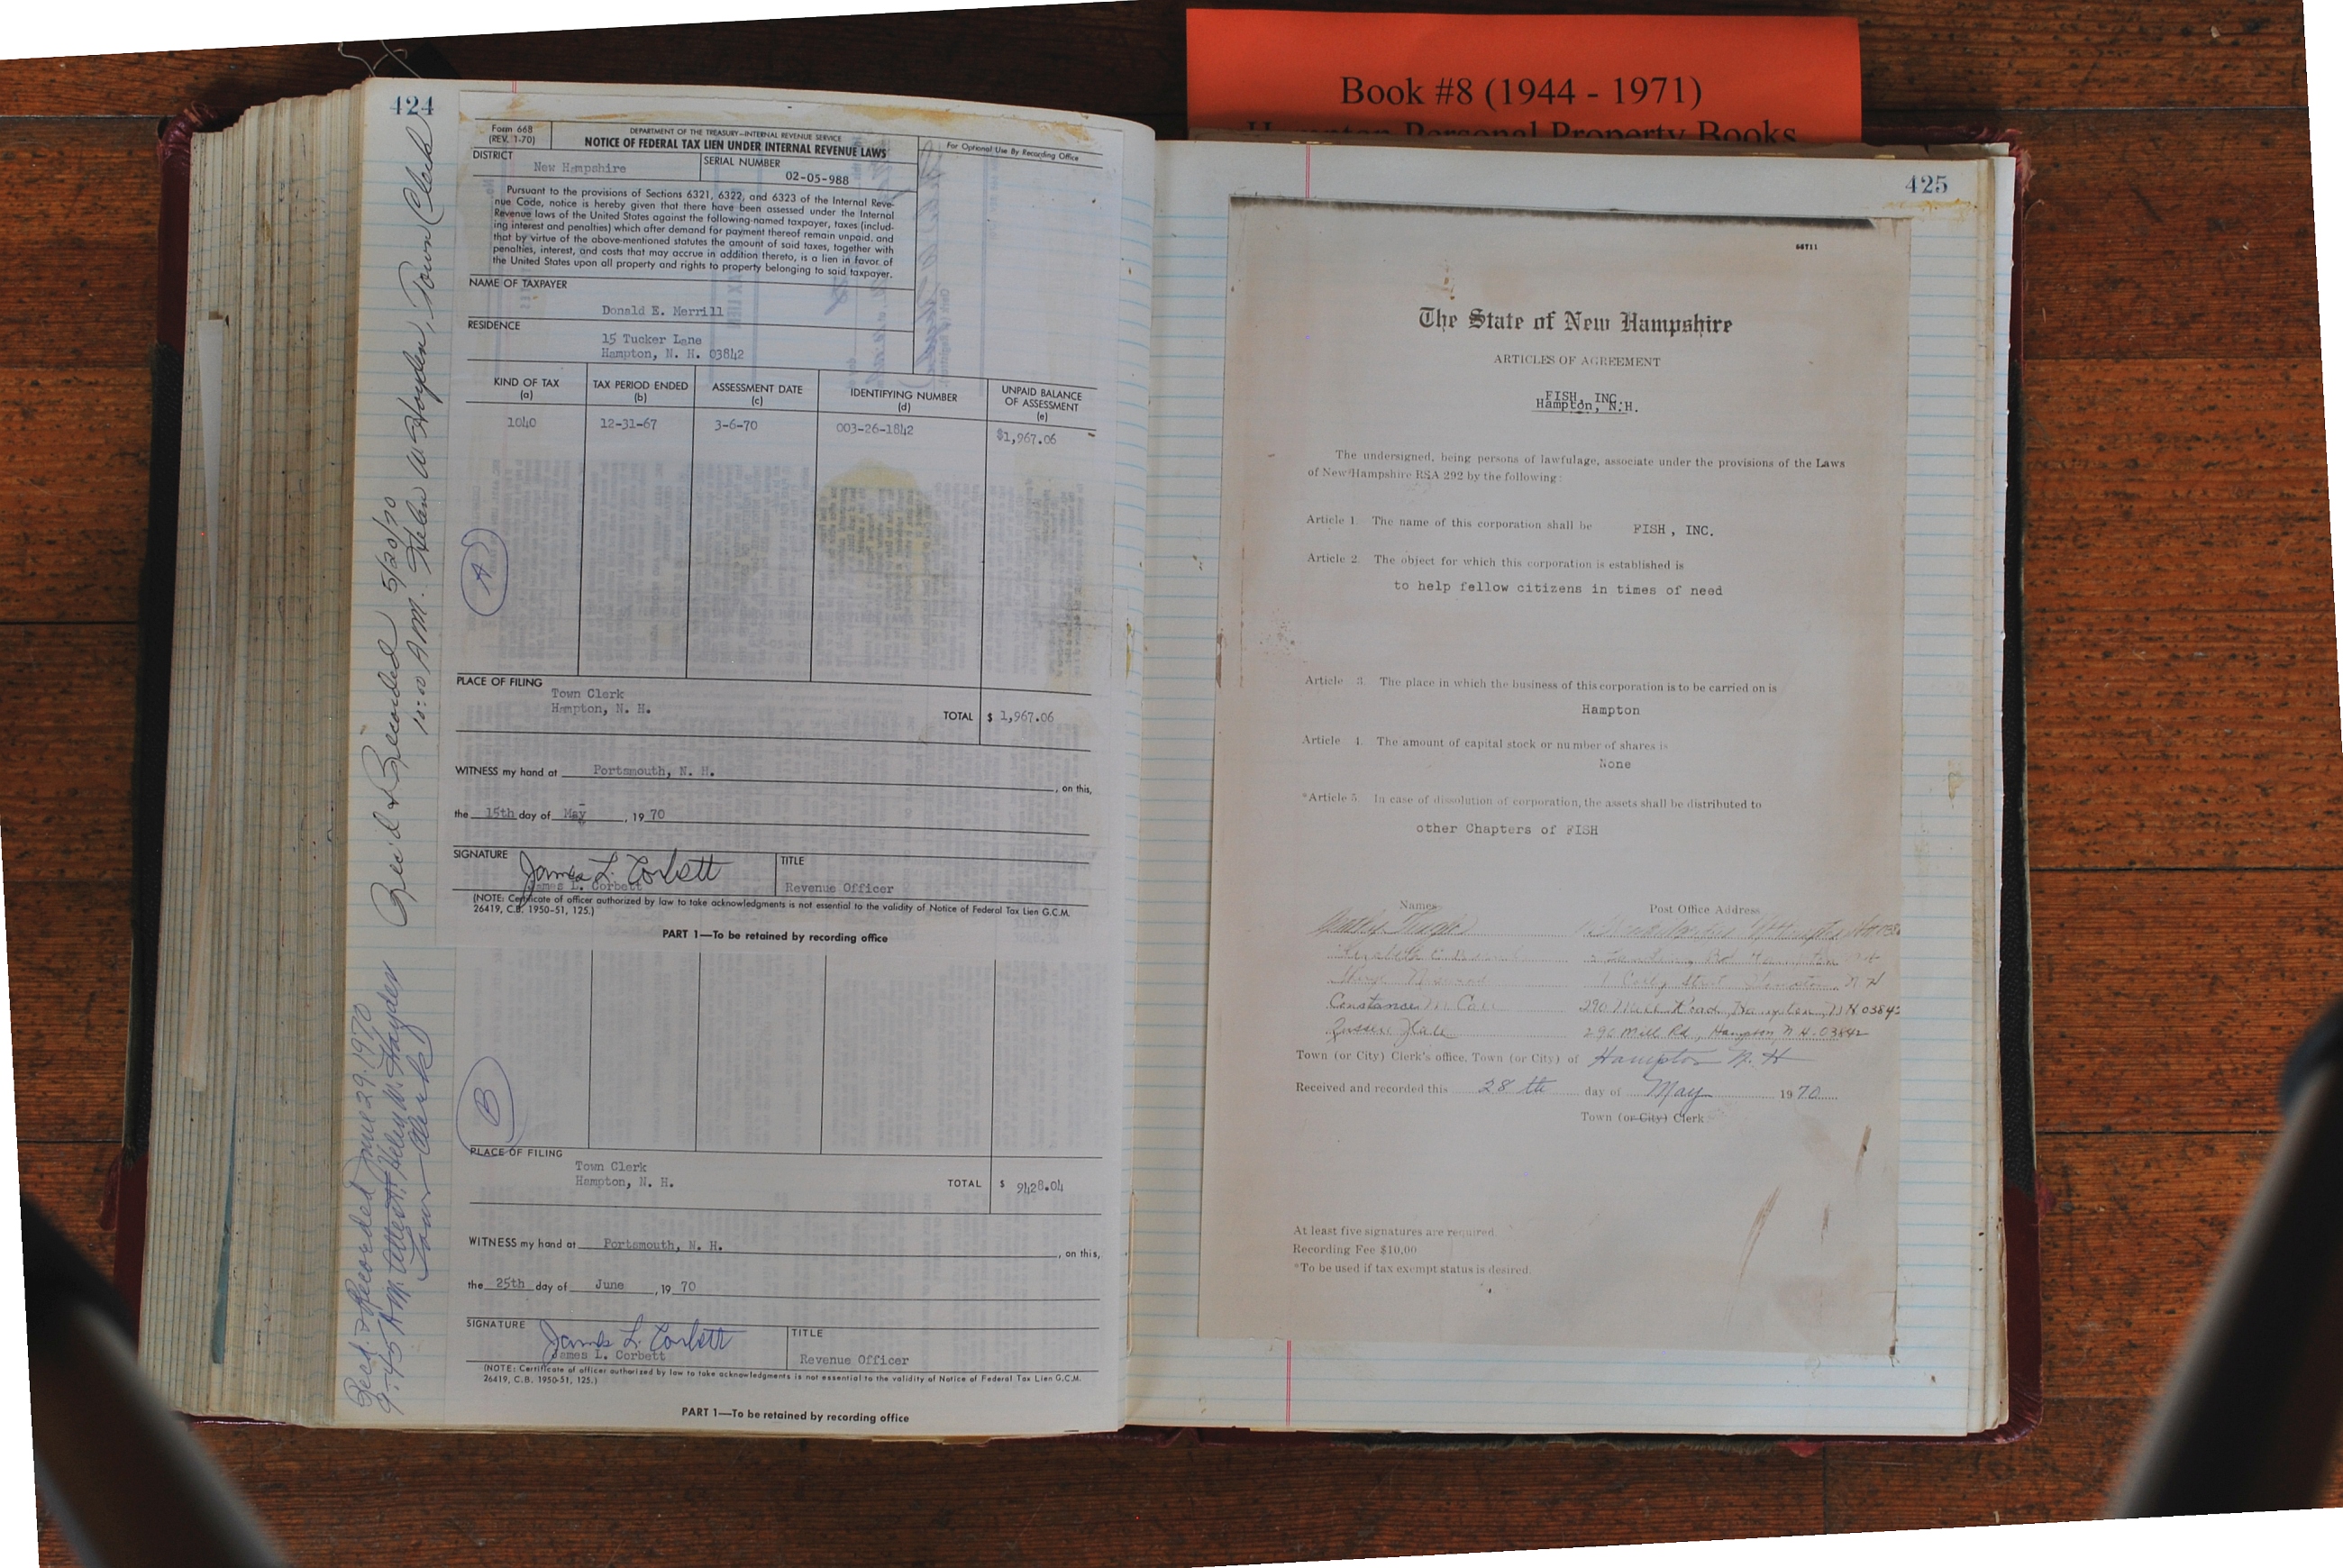 Book #8 (1944 - 1971)
Hampton Personal Property Books
424
Form 668
(REV. 1-70)
DEPARTMENT OF THE TREASURY—INTERNAL REVENUE SERVICE
NOTICE OF FEDERAL TAX LIEN UNDER INTERNAL REVENUE LAWS
For Optional Use By Recording Office
DISTRICT
New Hampshire
SERIAL NUMBER
02-05-988
Pursuant to the provisions of Sections 6321, 6322, and 6323 of the Internal Reve-
nue Code, notice is hereby given that there have been assessed under the Internal
Revenue laws of the United States against the following-named taxpayer, taxes (includ-
ing interest and penalties) which after demand for payment thereof remain unpaid, and
that by virtue of the above-mentioned statutes the amount of said taxes, together with
penalties, interest, and costs that may accrue in addition thereto, is a lien in favor of
the United States upon all property and rights to property belonging to said taxpayer.
NAME OF TAXPAYER
Donald E. Merrill
RESIDENCE
15 Tucker Lane
Hampton, N. H. 03842
KIND OF TAX (a) TAX PERIOD ENDED (b) ASSESSMENT DATE (c) IDENTIFYING NUMBER (d) UNPAID BALANCE OF ASSESSMENT (e)
1040 12-31-67 3-6-70 003-26-1842 $1,967.06
A
PLACE OF FILING
Town Clerk
Hampton, N. H.
TOTAL $ 1,967.06
WITNESS my hand at Portsmouth, N. H., on this,
the 15th day of May, 19 70
SIGNATURE James L. Corbett
James L. Corbett
TITLE
Revenue Officer
(NOTE: Certificate of officer authorized by law to take acknowledgments is not essential to the validity of Notice of Federal Tax Lien G.C.M.
26419, C.B. 1950-51, 125.)
PART 1—To be retained by recording office
Rec'd & Recorded 5/20/70
10:00 A.M. Helen W Hayden, Town Clerk
B
PLACE OF FILING
Town Clerk
Hampton, N. H.
TOTAL $ 9428.04
WITNESS my hand at Portsmouth, N. H., on this,
the 25th day of June, 19 70
SIGNATURE James L. Corbett
James L. Corbett
TITLE
Revenue Officer
(NOTE: Certificate of officer authorized by law to take acknowledgments is not essential to the validity of Notice of Federal Tax Lien G.C.M.
26419, C.B. 1950-51, 125.)
PART 1—To be retained by recording office
Recd & Recorded June 29, 1970
9:45 A.M. Attest: Helen W. Hayden
Town Clerk
425
66T11
The State of New Hampshire
ARTICLES OF AGREEMENT
FISH, INC.
Hampton, N.H.
The undersigned, being persons of lawfulage, associate under the provisions of the Laws
of New Hampshire RSA 292 by the following:
Article 1. The name of this corporation shall be FISH, INC.
Article 2. The object for which this corporation is established is
to help fellow citizens in times of need
Article 3. The place in which the business of this corporation is to be carried on is
Hampton
Article 4. The amount of capital stock or number of shares is
None
*Article 5. In case of dissolution of corporation, the assets shall be distributed to
other Chapters of FISH
Names Post Office Address
Constance M. 290 Mill Road, Hampton, N H 03842
290 Mill Rd., Hampton, N.H. 03842
Town (or City) Clerk's office, Town (or City) of Hampton N. H
Received and recorded this 28th day of May 1970
Town (or City) Clerk
At least five signatures are required.
Recording Fee $10.00
*To be used if tax exempt status is desired.